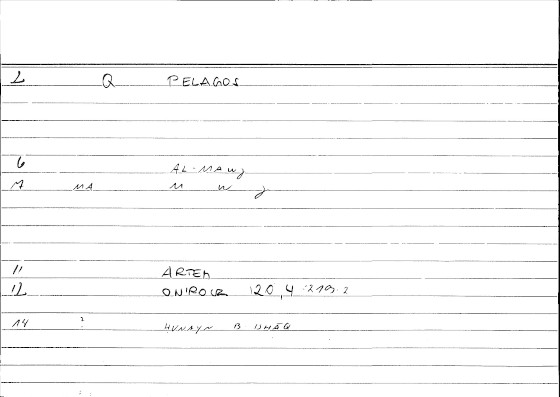 2 Q PELAGOS
6 AL-MAWJ
M MA M W J
11 ARTEM
12 ONIROCR 120,4 :219.2
14 ? HUNAYN B ISHĀQ